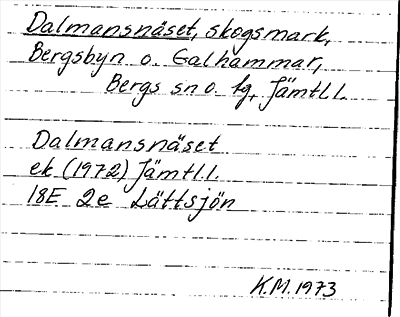 Dalmansnäset, skogsmark,
Bergsbyn o. Galhammar,
Bergs sn o. tg, Jämtl l.
Dalmansnäset
ek (1972) Jämtl.l.
18E 2e Lättsjön
K.M. 1973